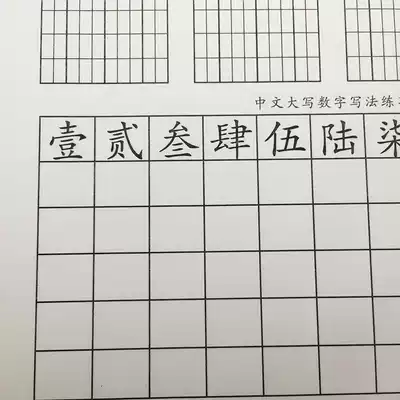 中文大写数字写法练
壹贰叁肆伍陆柒